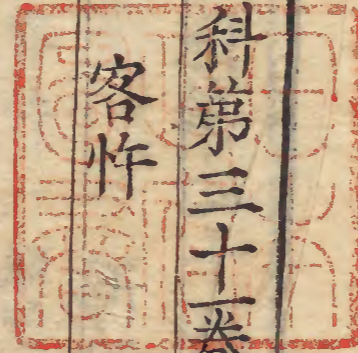 科第三十一卷
客忤